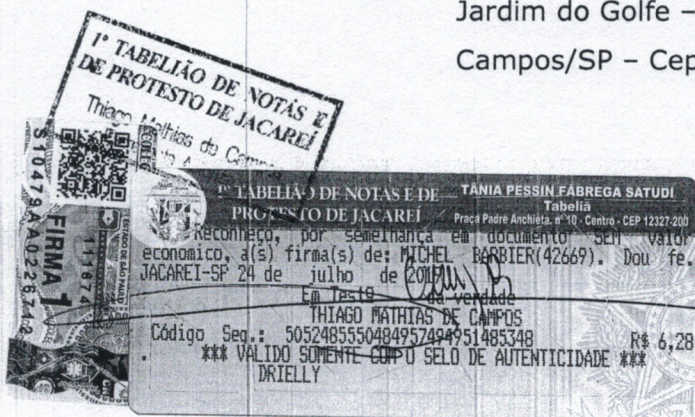 Jardim do Golfe –
Campos/SP – Cep
1º TABELIÃO DE NOTAS E
DE PROTESTO DE JACAREÍ
Thiago Mathias de
S10479AA0226742
FIRMA 1
111674
ESTADO DE SÃO PAULO
1º TABELIÃO DE NOTAS E DE
PROTESTO DE JACAREÍ
TÂNIA PESSIN FÁBREGA SATUDI
Tabeliã
Praça Padre Anchieta, nº 10 - Centro - CEP 12327-200
Reconheço, por semelhança em documento SEM valor
economico, a(s) firma(s) de: MICHEL BARBIER(42669). Dou fe.
JACAREI-SP 24 de julho de
Em Testº da verdade
THIAGO MATHIAS DE CAMPOS
Código Seg.: R$ 6,28
*** VALIDO SOMENTE COM O SELO DE AUTENTICIDADE ***
DRIELLY